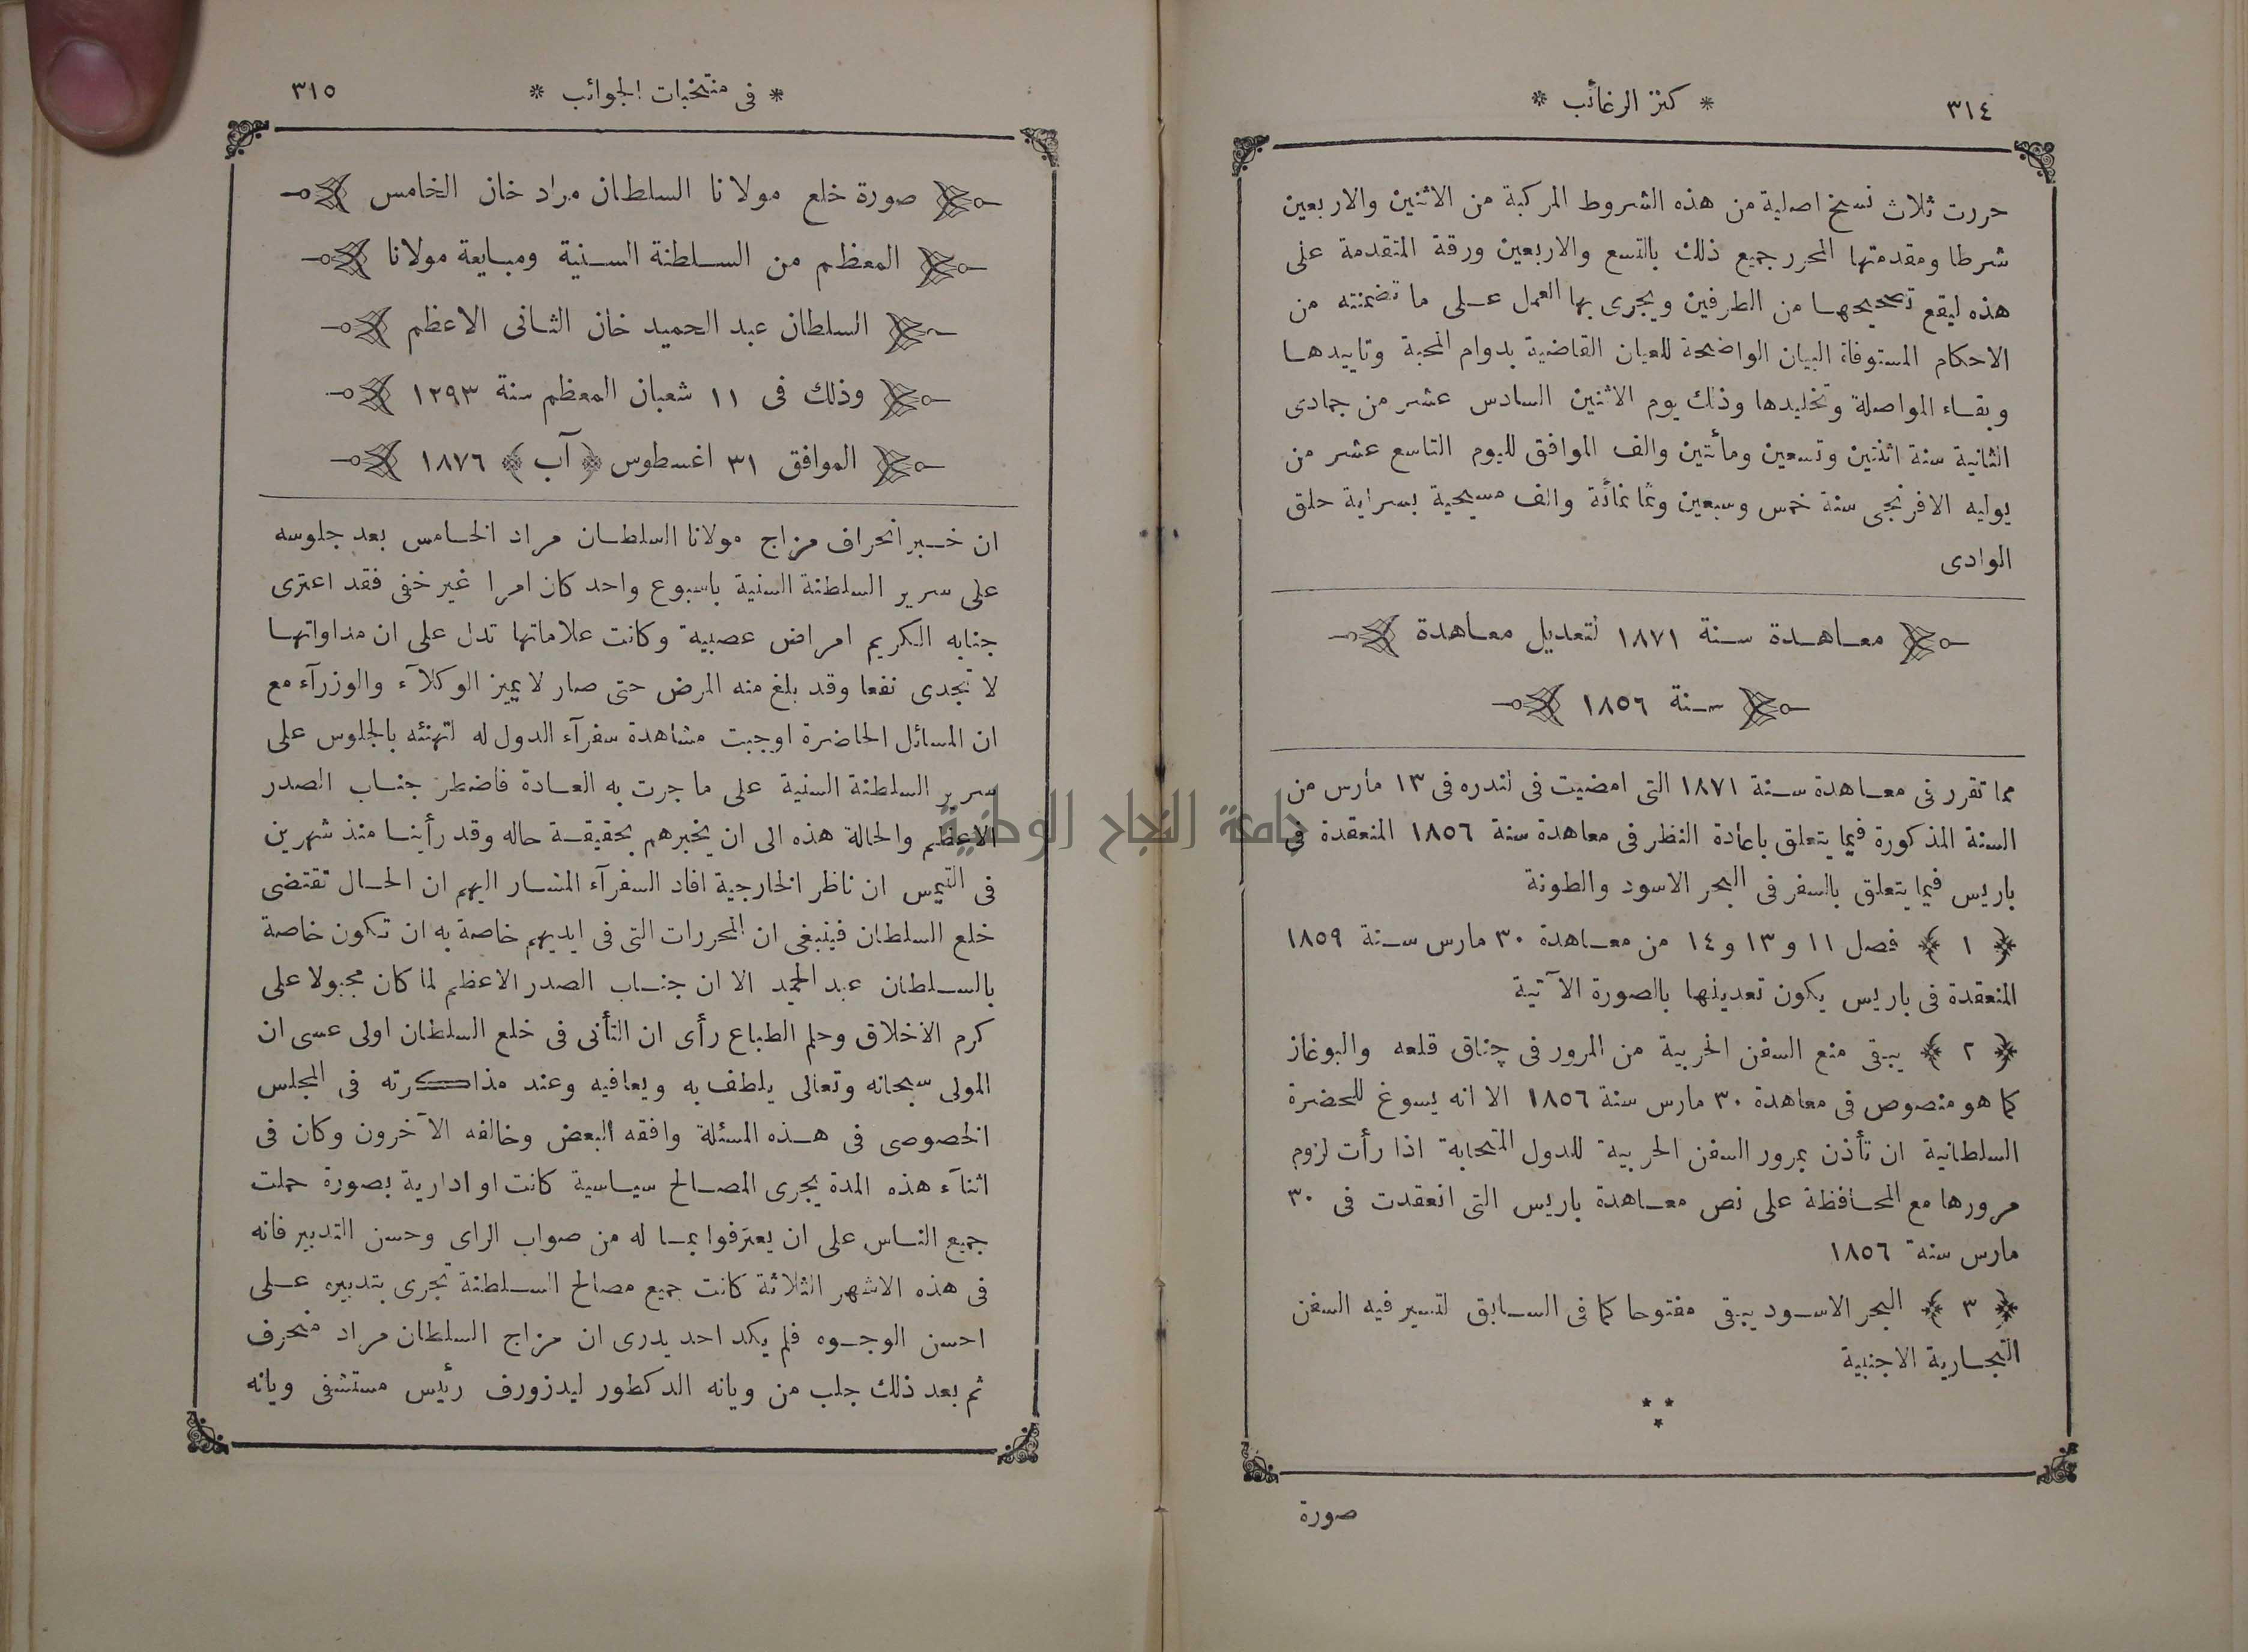 ٣١٤
* كنز الرغائب *
حررت ثلاث نسخ اصلية من هذه الشروط المركبة من الاثنين والاربعين
شرطا ومقدمتها المحرر جميع ذلك بالتسع والاربعين ورقة المتقدمة على
هذه ليقع تصحيحها من الطرفين ويجرى بها العمل على ما تضمنته من
الاحكام المستوفاة البيان الواضحة للعيان القاضية بدوام المحبة وتاييدها
وبقاء المواصلة وتخليدها وذلك يوم الاثنين السادس عشر من جمادى
الثانية سنة اثنتين وتسعين ومأتين والف الموافق لليوم التاسع عشر من
يوليه الافرنجى سنة خمس وسبعين وثمانمائة والف مسيحية بسراية حلق
الوادى
معاهدة سنة ١٨٧١ لتعديل معاهدة
سنة ١٨٥٦
مما تقرر فى معاهدة سنة ١٨٧١ التى امضيت فى لندره فى ١٣ مارس من
السنة المذكورة فيما يتعلق باعادة النظر فى معاهدة سنة ١٨٥٦ المنعقدة فى
باريس فيما يتعلق بالسفر فى البحر الاسود والطونة
﴿ ١ ﴾ فصل ١١ و ١٣ و ١٤ من معاهدة ٣٠ مارس سنة ١٨٥٩
المنعقدة فى باريس يكون تعديلها بالصورة الآتية
﴿ ٢ ﴾ يبقى منع السفن الحربية من المرور فى چناق قلعه والبوغاز
كما هو منصوص فى معاهدة ٣٠ مارس سنة ١٨٥٦ الا انه يسوغ للحضرة
السلطانية ان تأذن بمرور السفن الحربية للدول المتحابة اذا رأت لزوم
مرورها مع المحافظة على نص معاهدة باريس التى انعقدت فى ٣٠
مارس سنة ١٨٥٦
﴿ ٣ ﴾ البحر الاسود يبقى مفتوحا كما فى السابق لتسير فيه السفن
التجارية الاجنبية
* * *
صورة
* فى منتخبات الجوائب *
٣١٥
صورة خلع مولانا السلطان مراد خان الخامس
المعظم من السلطنة السنية ومبايعة مولانا
السلطان عبد الحميد خان الثانى الاعظم
وذلك فى ١١ شعبان المعظم سنة ١٢٩٣
الموافق ٣١ اغسطوس ﴿ آب ﴾ ١٨٧٦
ان خبر انحراف مزاج مولانا السلطان مراد الخامس بعد جلوسه
على سرير السلطنة السنية باسبوع واحد كان امرا غير خفى فقد اعترى
جنابه الكريم امراض عصبية وكانت علاماتها تدل على ان مداواتها
لا تجدى نفعا وقد بلغ منه المرض حتى صار لا يميز الوكلآء والوزرآء مع
ان المسائل الحاضرة اوجبت مشاهدة سفرآء الدول له لتهنئه بالجلوس على
سرير السلطنة السنية على ما جرت به العادة فاضطر جناب الصدر
الاعظم والحالة هذه الى ان يخبرهم بحقيقة حاله وقد رأينا منذ شهرين
فى التيمس ان ناظر الخارجية افاد السفرآء المشار اليهم ان الحال تقتضى
خلع السلطان فينبغى ان المحررات التى فى ايديهم خاصة به ان تكون خاصة
بالسلطان عبد الحميد الا ان جناب الصدر الاعظم لما كان مجبولا على
كرم الاخلاق وحلم الطباع رأى ان التأنى فى خلع السلطان اولى عسى ان
المولى سبحانه وتعالى يلطف به ويعافيه وعند مذاكرته فى المجلس
الخصوصى فى هذه المسئلة وافقه البعض وخالفه الآخرون وكان فى
اثنآء هذه المدة يجرى المصالح سياسية كانت او ادارية بصورة حملت
جميع الناس على ان يعترفوا بما له من صواب الراى وحسن التدبير فانه
فى هذه الاشهر الثلاثة كانت جميع مصالح السلطنة تجرى بتدبيره على
احسن الوجوه فلم يكد احد يدرى ان مزاج السلطان مراد منحرف
ثم بعد ذلك جلب من ويانه الدكطور ليدزورف رئيس مستشفى ويانه
جامعة النجاح الوطنية